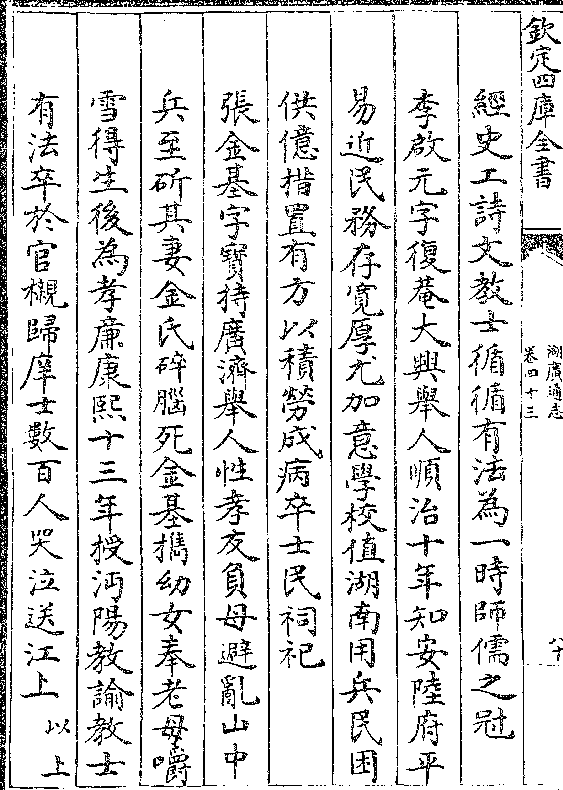 欽定四庫全書
湖廣通志
卷四十三
八十
經史工詩文教士循循有法為一時師儒之冠
李啟元字復菴大興舉人順治十年知安陸府平
易近民務存寛厚尤加意學校值湖南用兵民困
供億措置有方以積勞成病卒士民祠祀
張金基字寶持廣濟舉人性孝友負母避亂山中
兵至斫其妻金氏碎腦死金基攜幼女奉老母嚼
雪得生後為孝廉康熙十三年授沔陽教諭教士
有法卒於官櫬歸庠士數百人哭泣送江上
以上